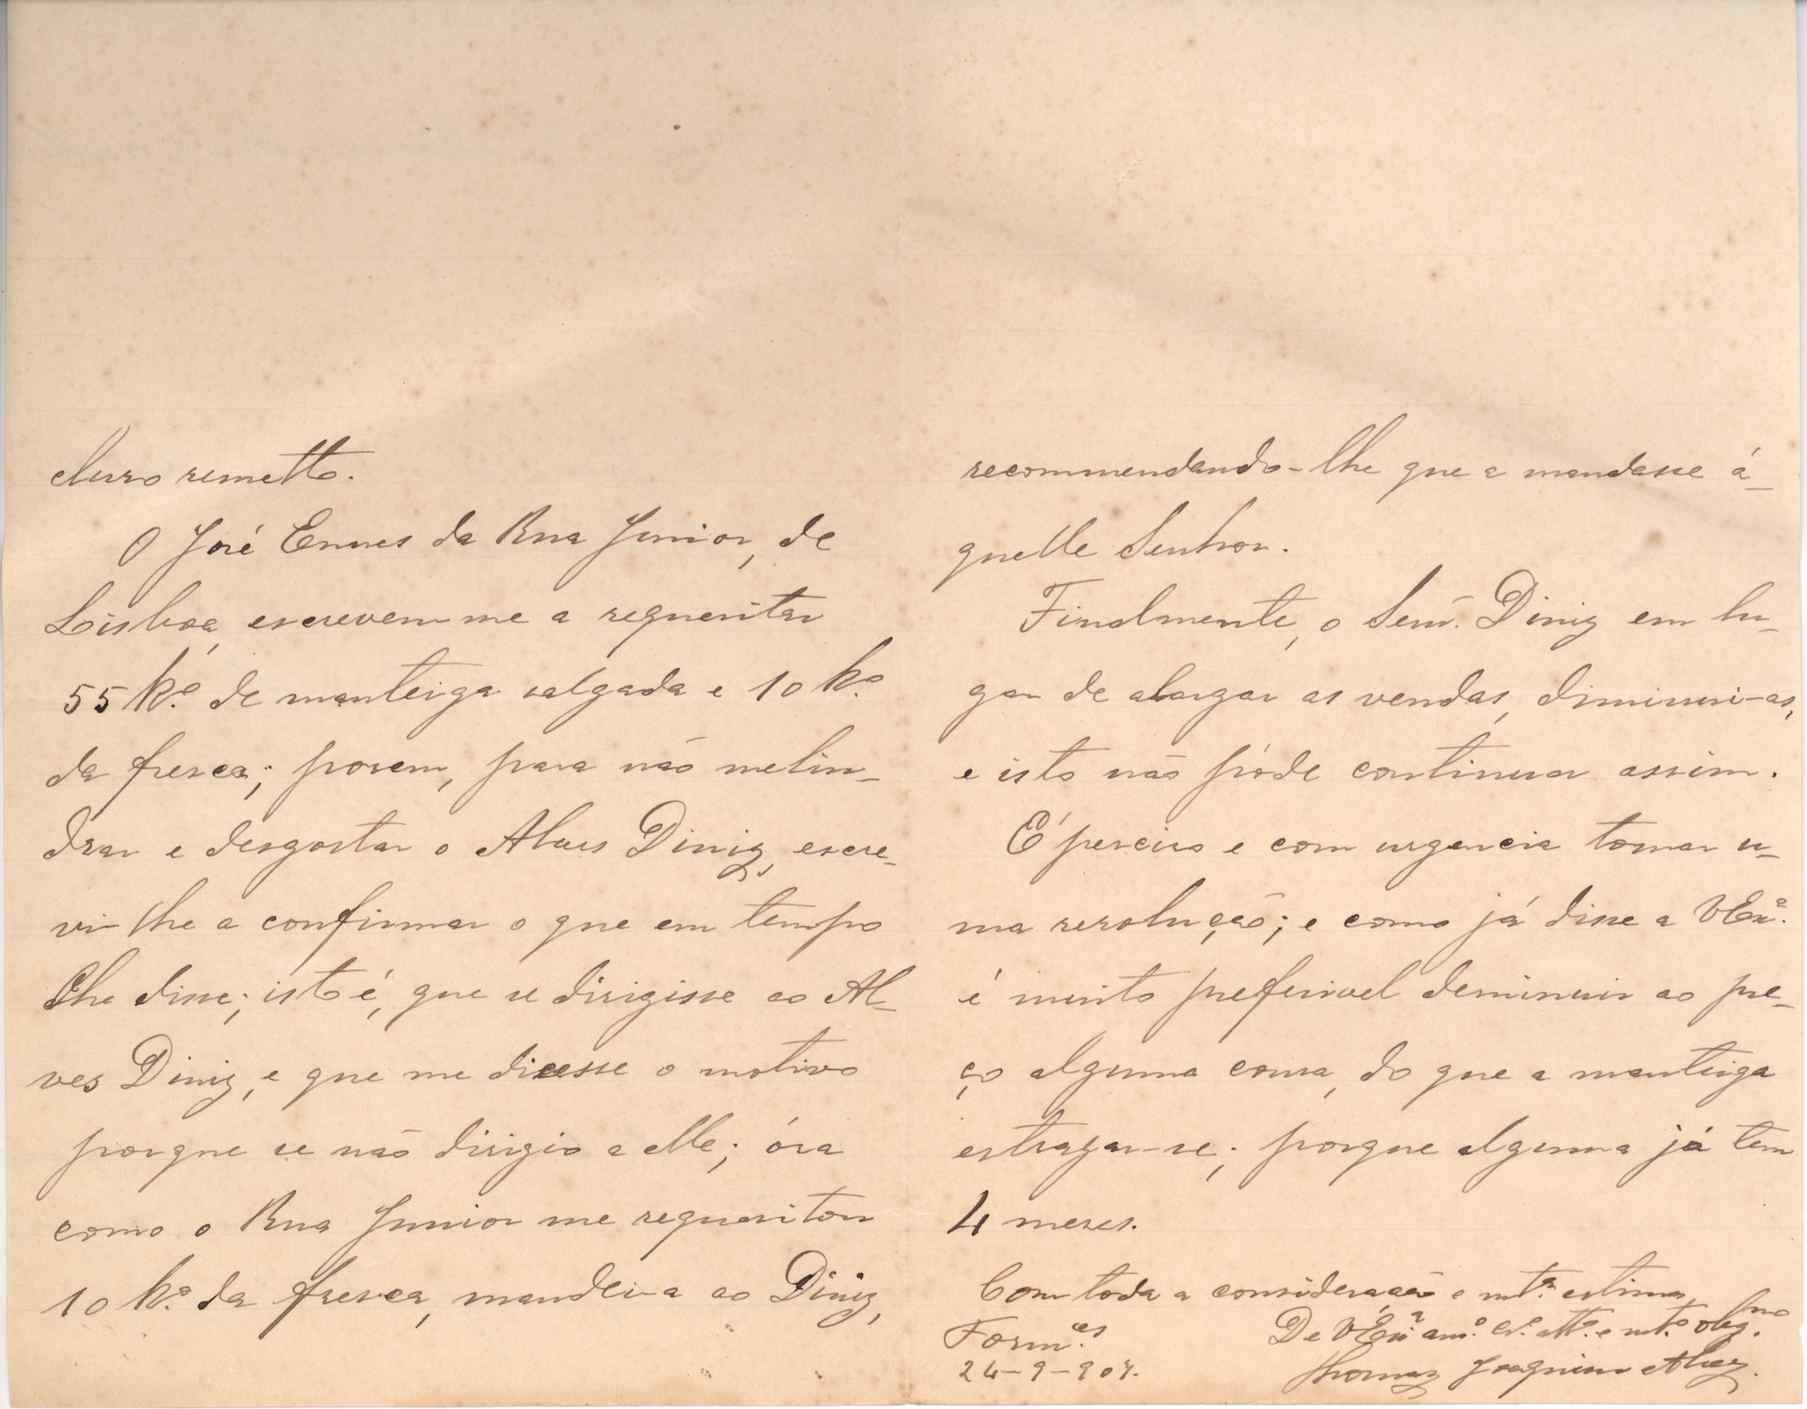 cluso remetto.
O José Ennes da Rua Junior, de
Lisboa, escreveu-me a requesitar
55 k.º de manteiga salgada e 10 k.º
da fresca; porem, para não melin-
drar e desgostar o Alves Diniz, escre-
vi-lhe a confirmar o que em tempo
lhe disse; isto é, que se dirigisse ao Al-
ves Diniz, e que me dicesse o motivo
porque se não dirigio a elle; óra
como o Rua Junior me requesitou
10 k.º da fresca, mandei-a ao Diniz,
recommendando-lhe que a mandasse á-
quelle Senhor.
Finalmente, o Senr. Diniz em lu-
gar de alargar as vendas, diminui-as,
e isto não póde continuar assim.
É perciso e com urgencia tomar u-
ma resolução; e como já disse a VExª.
é muito preferivel deminuir ao pre-
ço alguma cousa, do que a manteiga
estragar-se; porque alguma já tem
4 meses.
Com toda a consideração e mt.ª estima,
De VExª am.º cr.º att.º e mt.º obg.mo
Form.es
24-9-907.
Thomaz Joaquim Alvez.